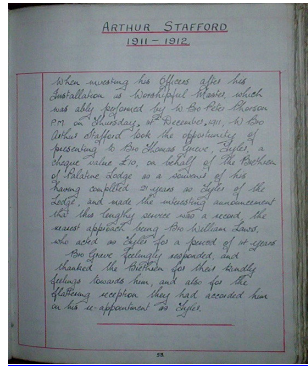 ARTHUR STAFFORD
1911-1912
When investing his Officers after his
Installation as Worshipful Master, which
was ably performed by W Bro Peter
P.M. on Thursday, December, 1911, W Bro
Arthur Stafford took the opportunity of
presenting to Bro Thomas Grieve, Tyler, a
cheque value £10, on behalf of The Brethren
of Palatine Lodge as a souvenir of his
having completed years as Tyler of the
Lodge, and made the interesting announcement
that this lengthy service was a record, the
nearest approach being Bro William Laws,
who acted as Tyler for a period of years
Bro Grieve feelingly responded, and
thanked the Brethren for their kindly
feelings towards him, and also for the
flattering reception they had accorded him
on his re-appointment as Tyler.